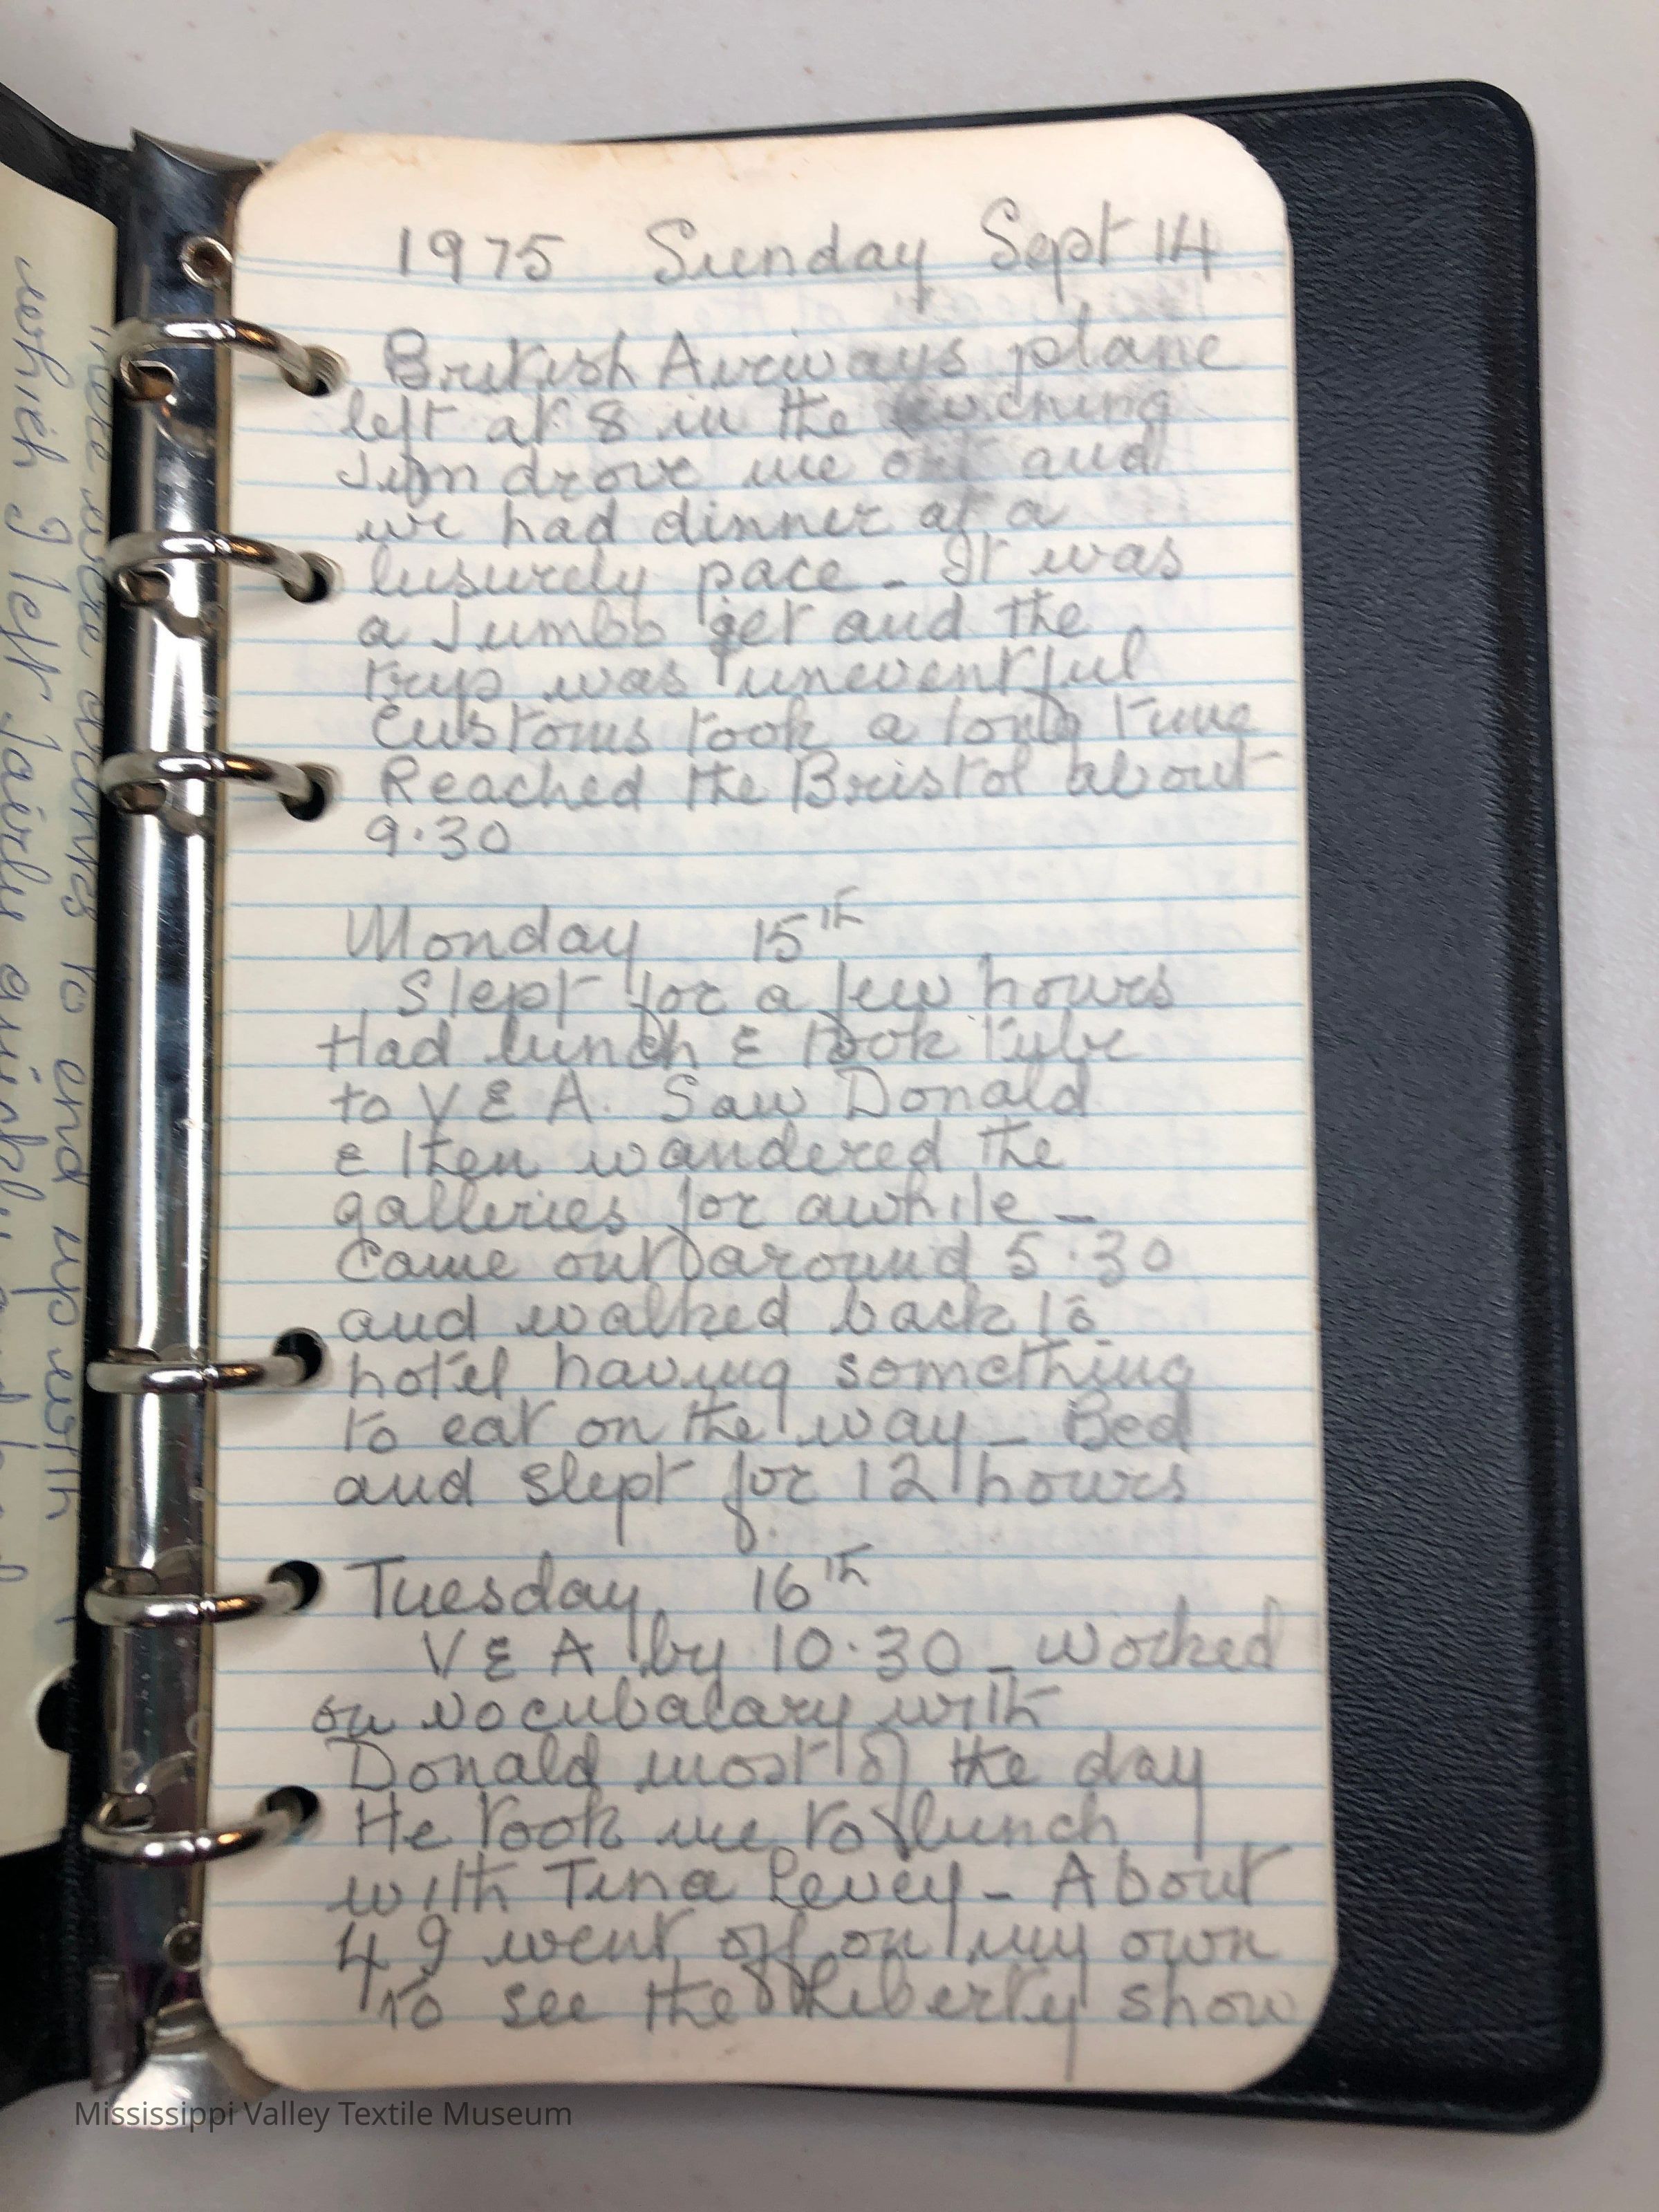 1975 Sunday Sept 14
British Airways plane
left at 8 in the evening
Jim drove me out and
we had dinner at a
lusurely pace - It was
a Jumbo jet and the
trip was uneventful
Customs took a long time
Reached the Bristol about
9.30
Monday 15th
Slept for a few hours
Had lunch & took tube
to V & A. Saw Donald
& then wandered the
galleries for awhile -
Came out around 5.30
and walked back to
hotel having something
to eat on the way - Bed
and slept for 12 hours
Tuesday 16th
V & A by 10.30 - worked
on vocubalary with
Donald most of the day
He took me to lunch
with Tina Levey - About
4 I went off on my own
to see the Liberty show
more use
aches to end up with
which I left fairly quickly and had
Mississippi Valley Textile Museum